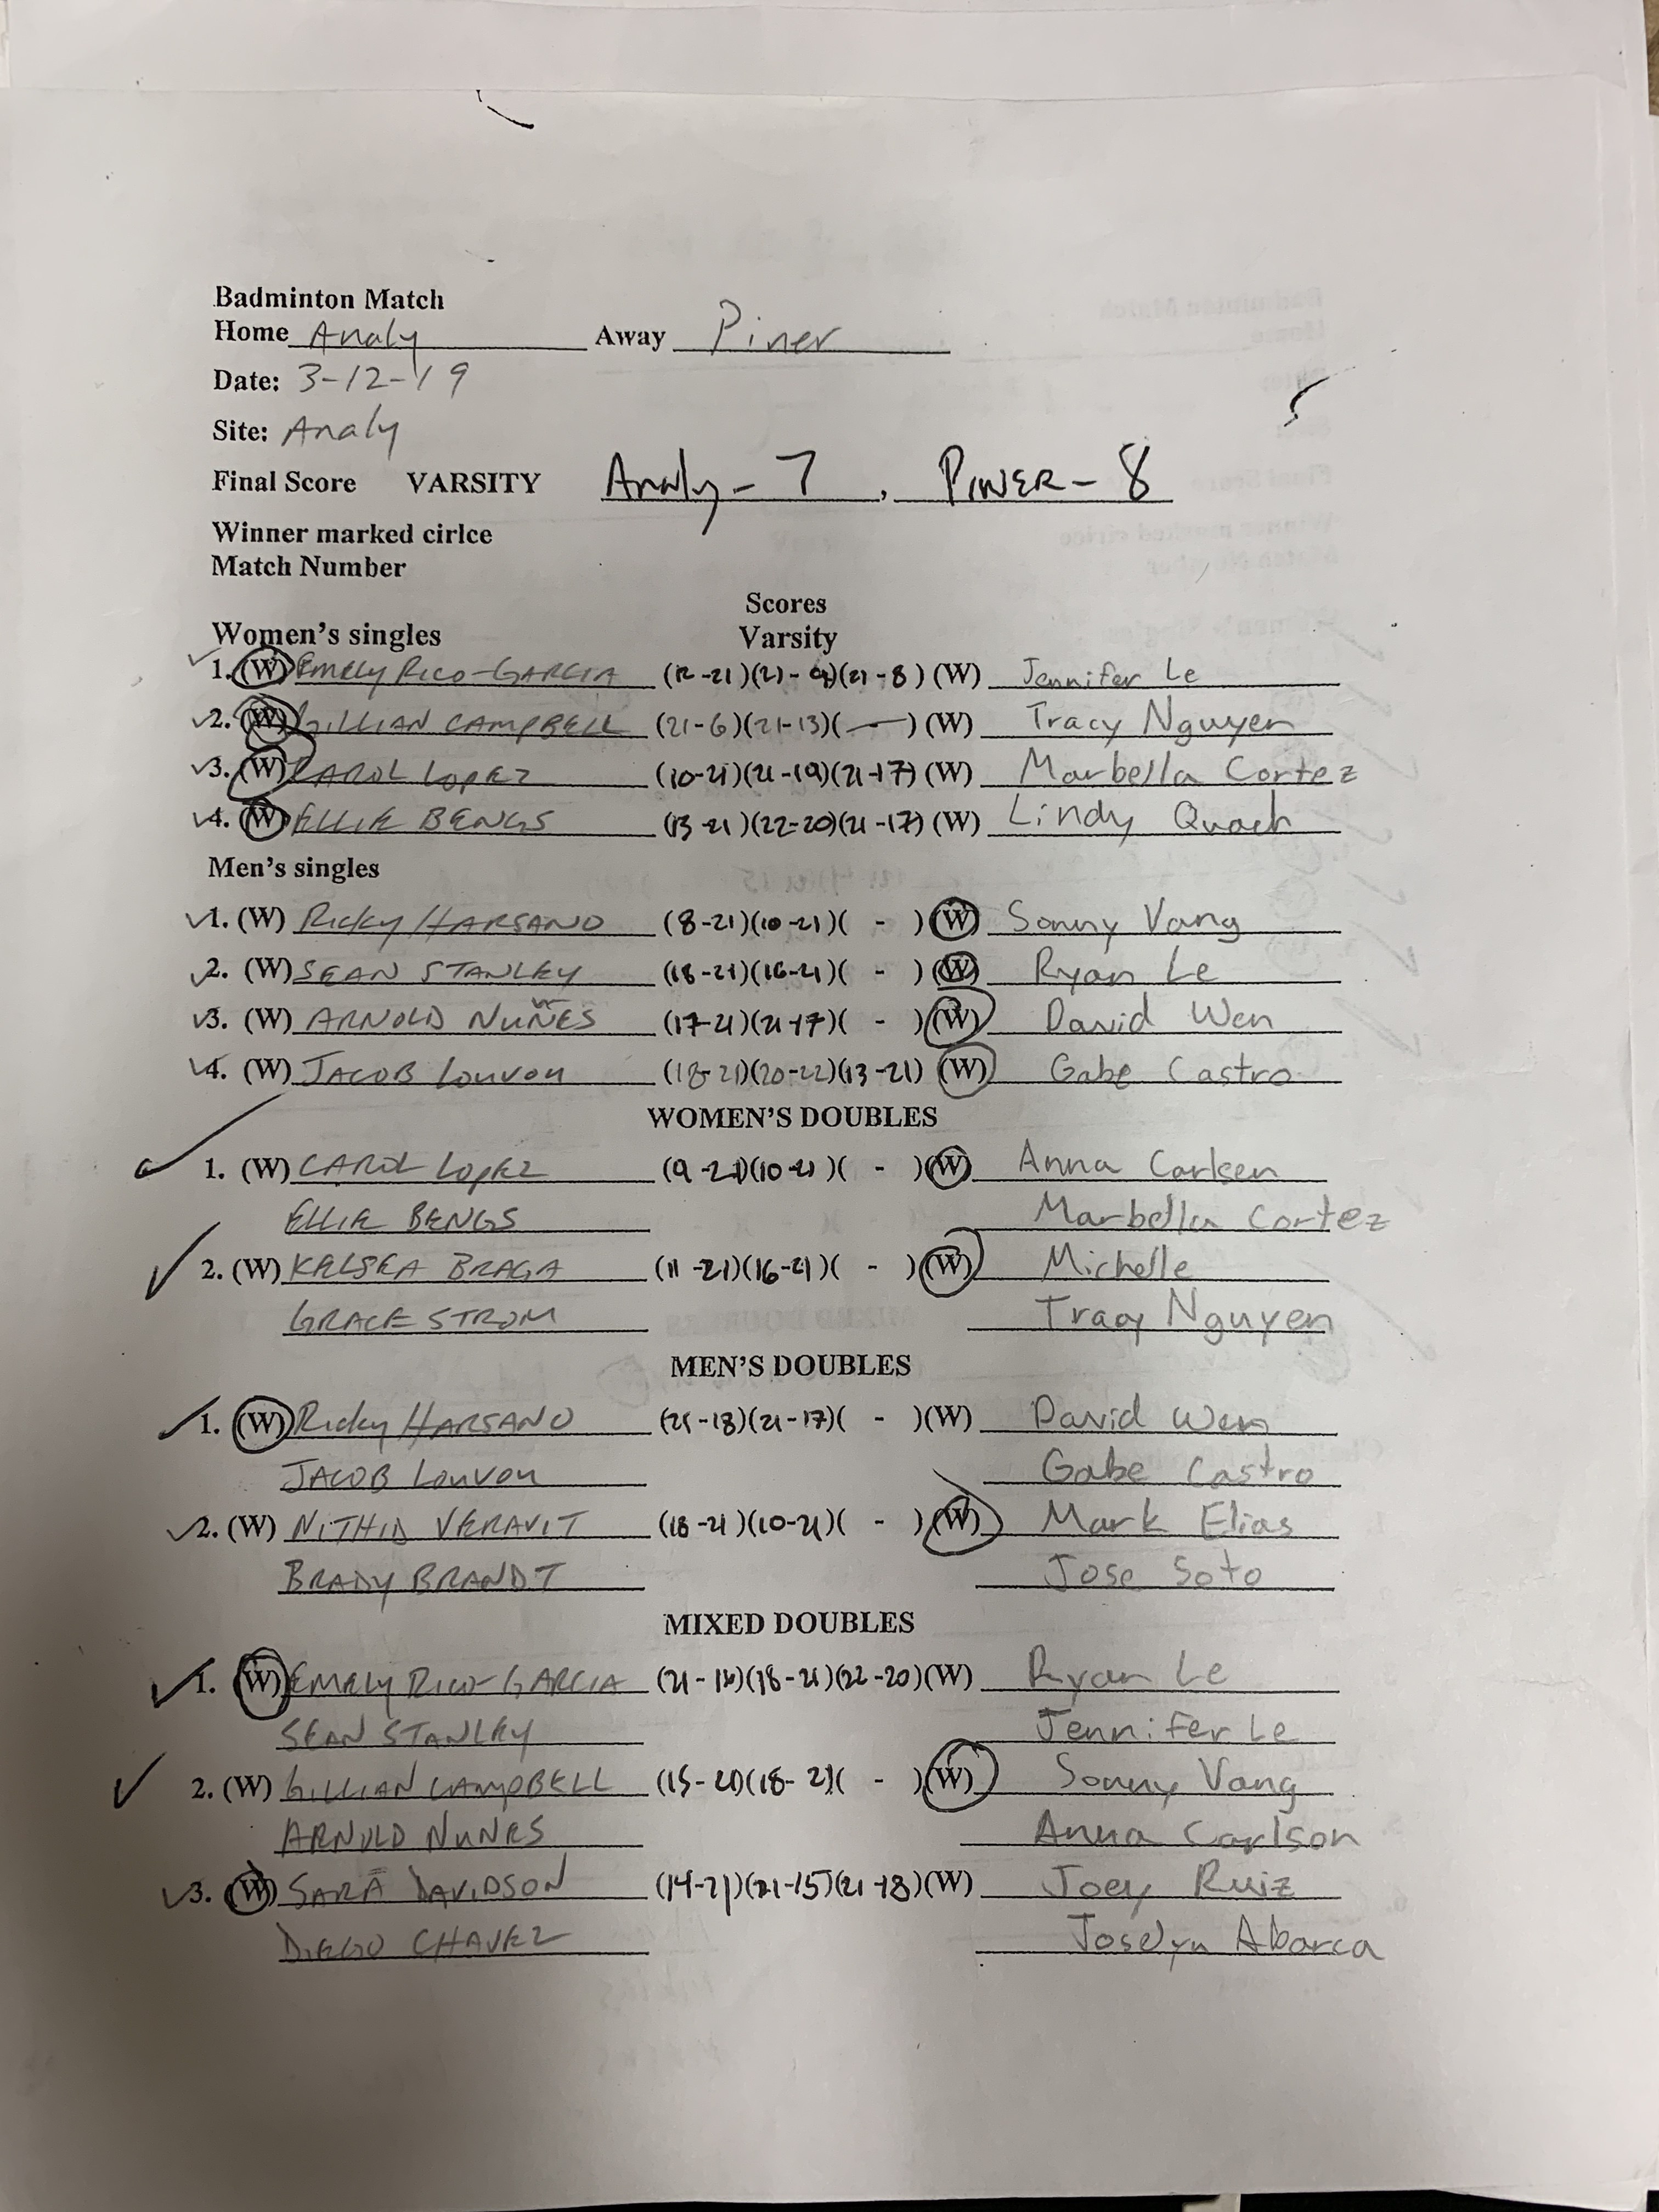 Badminton Match
Home Analy Away Piner
Date: 3-12-19
Site: Analy
Final Score VARSITY Analy - 7, PINER - 8
Winner marked cirlce
Match Number
Scores
Women's singles Varsity
1. (W) EMELY RICO-GARCIA (12-21)(21-9)(21-8) (W) Jennifer Le
2. (W) GILLIAN CAMPBELL (21-6)(21-13)( — ) (W) Tracy Nguyen
3. (W) CAROL LOPEZ (10-21)(21-19)(21-17) (W) Marbella Cortez
4. (W) ELLIE BENGS (13-21)(22-20)(21-17) (W) Lindy Quach
Men's singles
1. (W) RICKY HARSANO (8-21)(10-21)( - ) (W) Sonny Vang
2. (W) SEAN STANLEY (18-21)(16-21)( - ) (W) Ryan Le
3. (W) ARNOLD NUÑES (17-21)(21-17)( - ) (W) David Wen
4. (W) JACOB LOUVON (18-21)(20-22)(13-21) (W) Gabe Castro
WOMEN'S DOUBLES
1. (W) CAROL LOPEZ (9-21)(10-21)( - ) (W) Anna Carlsen
ELLIE BENGS Marbella Cortez
2. (W) KELSEA BRAGA (11-21)(16-21)( - ) (W) Michelle
GRACE STROM Tracy Nguyen
MEN'S DOUBLES
1. (W) RICKY HARSANO (21-18)(21-17)( - ) (W) David Wen
JACOB LOUVON Gabe Castro
2. (W) NITHID VERAVIT (18-21)(10-21)( - ) (W) Mark Elias
BRADY BRANDT Jose Soto
MIXED DOUBLES
1. (W) EMELY RICO-GARCIA (21-16)(18-21)(22-20) (W) Ryan Le
SEAN STANLEY Jennifer Le
2. (W) GILLIAN CAMPBELL (15-21)(18-21)( - ) (W) Sonny Vang
ARNOLD NUNES Anna Carlson
3. (W) SARA DAVIDSON (14-21)(21-15)(21-18) (W) Joey Ruiz
DIEGO CHAVEZ Joselyn Abarca